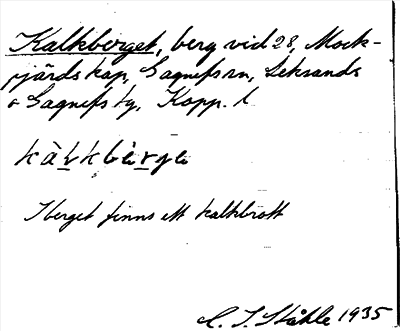 Kalkberget, berg vid 28, Mock-
fjärds kap, Gagnefs sn, Leksands
o Gagnefs tg, Kopp. l
kàlkbèrge
I berget finns ett kalkbrott
C. I. Ståhle 1935